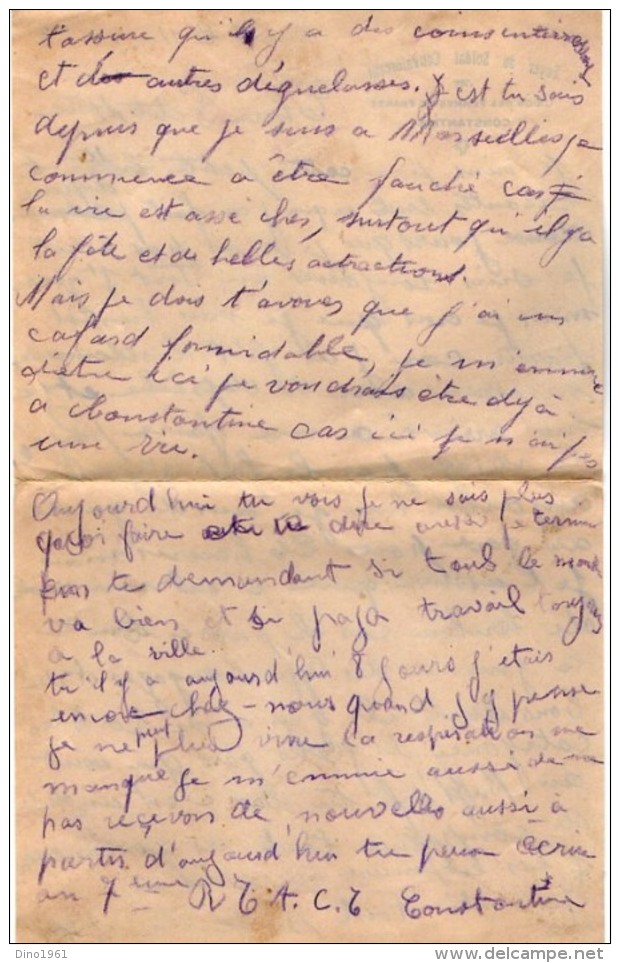 t'assure qu'il y a des
et autres dégueulasses. Et tu sais
depuis que je suis a Marseille je
commence a être fauché cas
la vie est asse cher, surtout qu'il y a
la fête et de belles attractions.
Mais je dois t'avouer que j'ai un
cafard formidable, je m'ennuie
d'être ici je voudrais être déjà
a Constantine cas ici je n'ai pas
une vie.
Aujourd'hui tu vois je ne sais plus
quoi faire dire aussi je termine
en te demandant si tous le monde
va bien et si papa travail toujours
a la ville.
tu il y a aujourd'hui 8 jours j'etais
encore chez-nous quand j'y pense
je ne peut plus vivre la respiration me
manque je m'ennuie aussi de ne
pas reçevoir de nouvelles aussi à
partir d'aujourd'hui tu peux écrire
au 7eme R T A. C. T Constantine
Dino1961